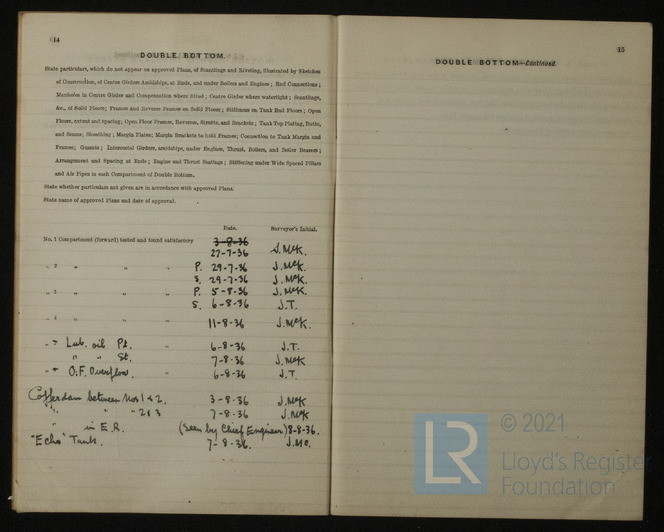 14
DOUBLE BOTTOM.
State particulars, which do not appear on approved Plans, of Scantlings and Riveting, illustrated by Sketches
of Construction, of Centre Girders Amidships, at Ends, and under Boilers and Engines; End Connections;
Manholes in Centre Girder and Compensation where fitted; Centre Girder where watertight; Scantlings,
&c., of Solid Floors; Frames and Reverse Frames on Solid Floors; Stiffeners on Tank End Floors; Open
Floors, extent and spacing; Open Floor Frames, Reverses, Struts, and Brackets; Tank Top Plating, Butts,
and Seams; Sheathing; Margin Plates; Margin Brackets to hold Frames; Connection to Tank Margin and
Frames; Gussets; Intercostal Girders, amidships, under Engines, Thrust, Boilers, and Boiler Bearers;
Arrangement and Spacing at Ends; Engine and Thrust Seatings; Stiffening under Wide Spaced Pillars
and Air Pipes in each Compartment of Double Bottom.
State whether particulars not given are in accordance with approved Plans.
State name of approved Plans and date of approval.
Date. Surveyor's Initial.
No. 1 Compartment (forward) tested and found satisfactory 3-8-36
27-7-36 J. McK.
„ 2 „ „ „ P. 29-7-36 J. McK.
S. 29-7-36 J. McK.
„ 3 „ „ „ P. 5-8-36 J. McK.
S. 6-8-36 J.T.
„ 4 „ „ „
11-8-36 J. McK.
Lub. oil Pt. 6-8-36 J.T.
„ „ St. 7-8-36 J. McK
O.F. Overflow. 6-8-36 J.T.
Cofferdam between Nos 1 & 2. 3-8-36 J. McK
„ „ 2 & 3 7-8-36 J. McK
„ in E.R. (Seen by Chief Engineer) 8-8-36.
"Echo" Tank. 7-8-36. J. Mc.
15
DOUBLE BOTTOM—Continued.
LR
© 2021
Lloyd's Register
Foundation